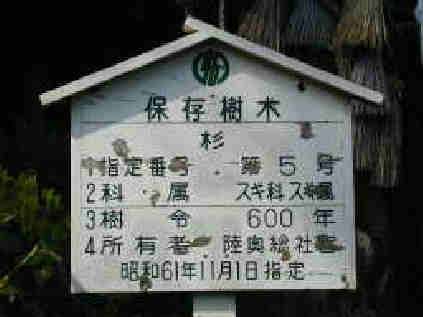 保存樹木
杉
1指定番号 第5号
2科・属 スギ科スギ属
3樹令 600年
4所有者 陸奥総社宮
昭和61年11月1日指定